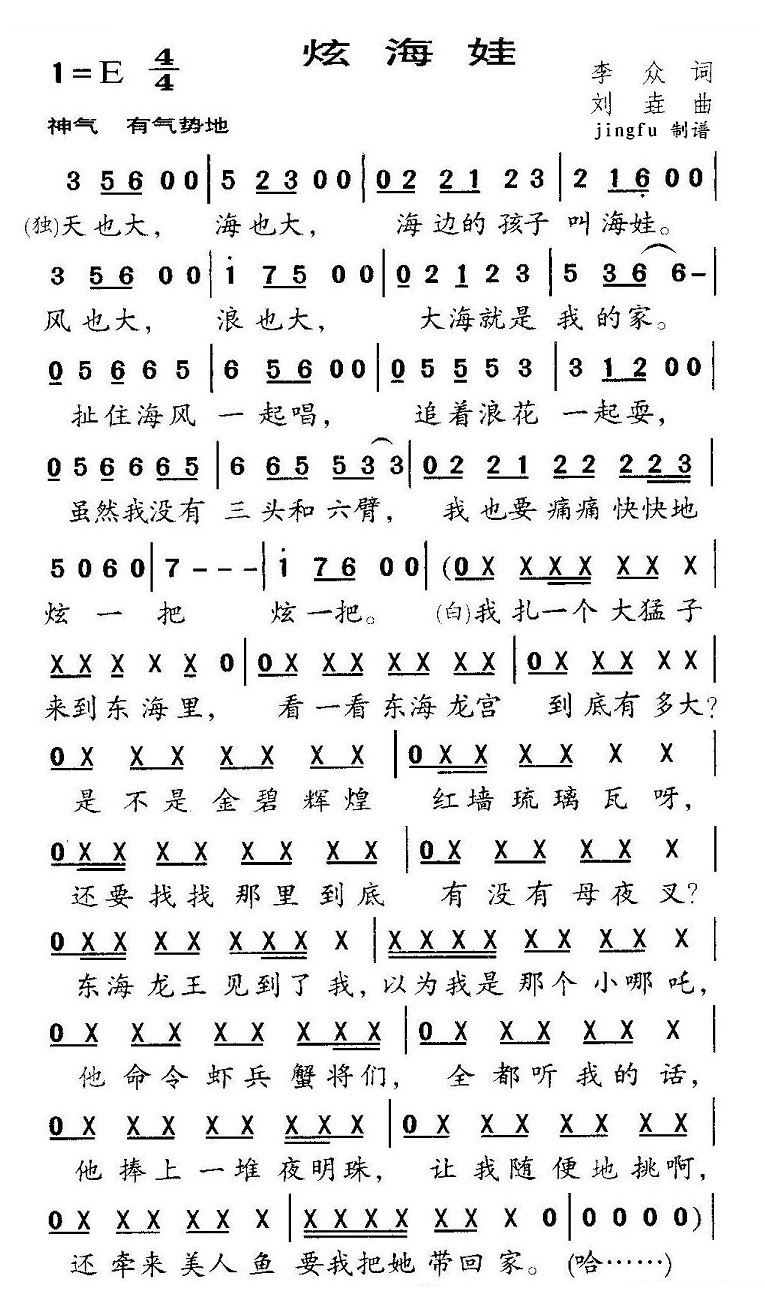 炫海娃
1=E 4/4
李众 词
刘垚 曲
神气 有气势地
jingfu 制谱
3 5 6 0 0 | 5 2 3 0 0 | 0 2 2 1 2 3 | 2 1 6 0 0 |
(独)天也大, 海也大, 海边的孩子 叫海娃。
3 5 6 0 0 | 1 7 5 0 0 | 0 2 1 2 3 | 5 3 6 6 - |
风也大, 浪也大, 大海就是 我的家。
0 5 6 6 5 | 6 5 6 0 0 | 0 5 5 5 3 | 3 1 2 0 0 |
扯住海风 一起唱, 追着浪花 一起耍,
0 5 6 6 6 5 | 6 6 5 5 3 3 | 0 2 2 1 2 2 2 2 3 |
虽然我没有 三头和六臂, 我也要痛痛快快地
5 0 6 0 | 7 - - - | 1 7 6 0 0 | (0 X X X X X X X
炫一把 炫一把。 (白)我扎一个大猛子
X X X X X 0 | 0 X X X X X X X | 0 X X X X X |
来到东海里, 看一看东海龙宫 到底有多大?
0 X X X X X X X | 0 X X X X X X |
是不是金碧辉煌 红墙琉璃瓦呀,
0 X X X X X X X X | 0 X X X X X X |
还要找找那里到底 有没有母夜叉?
0 X X X X X X X X | X X X X X X X X X |
东海龙王见到了我, 以为我是那个小哪吒,
0 X X X X X X X | 0 X X X X X X |
他命令虾兵蟹将们, 全都听我的话,
0 X X X X X X X X | 0 X X X X X X X |
他捧上一堆夜明珠, 让我随便地挑啊,
0 X X X X X X | X X X X X X X 0 | 0 0 0 0 )
还牵来美人鱼 要我把她带回家。 (哈……)